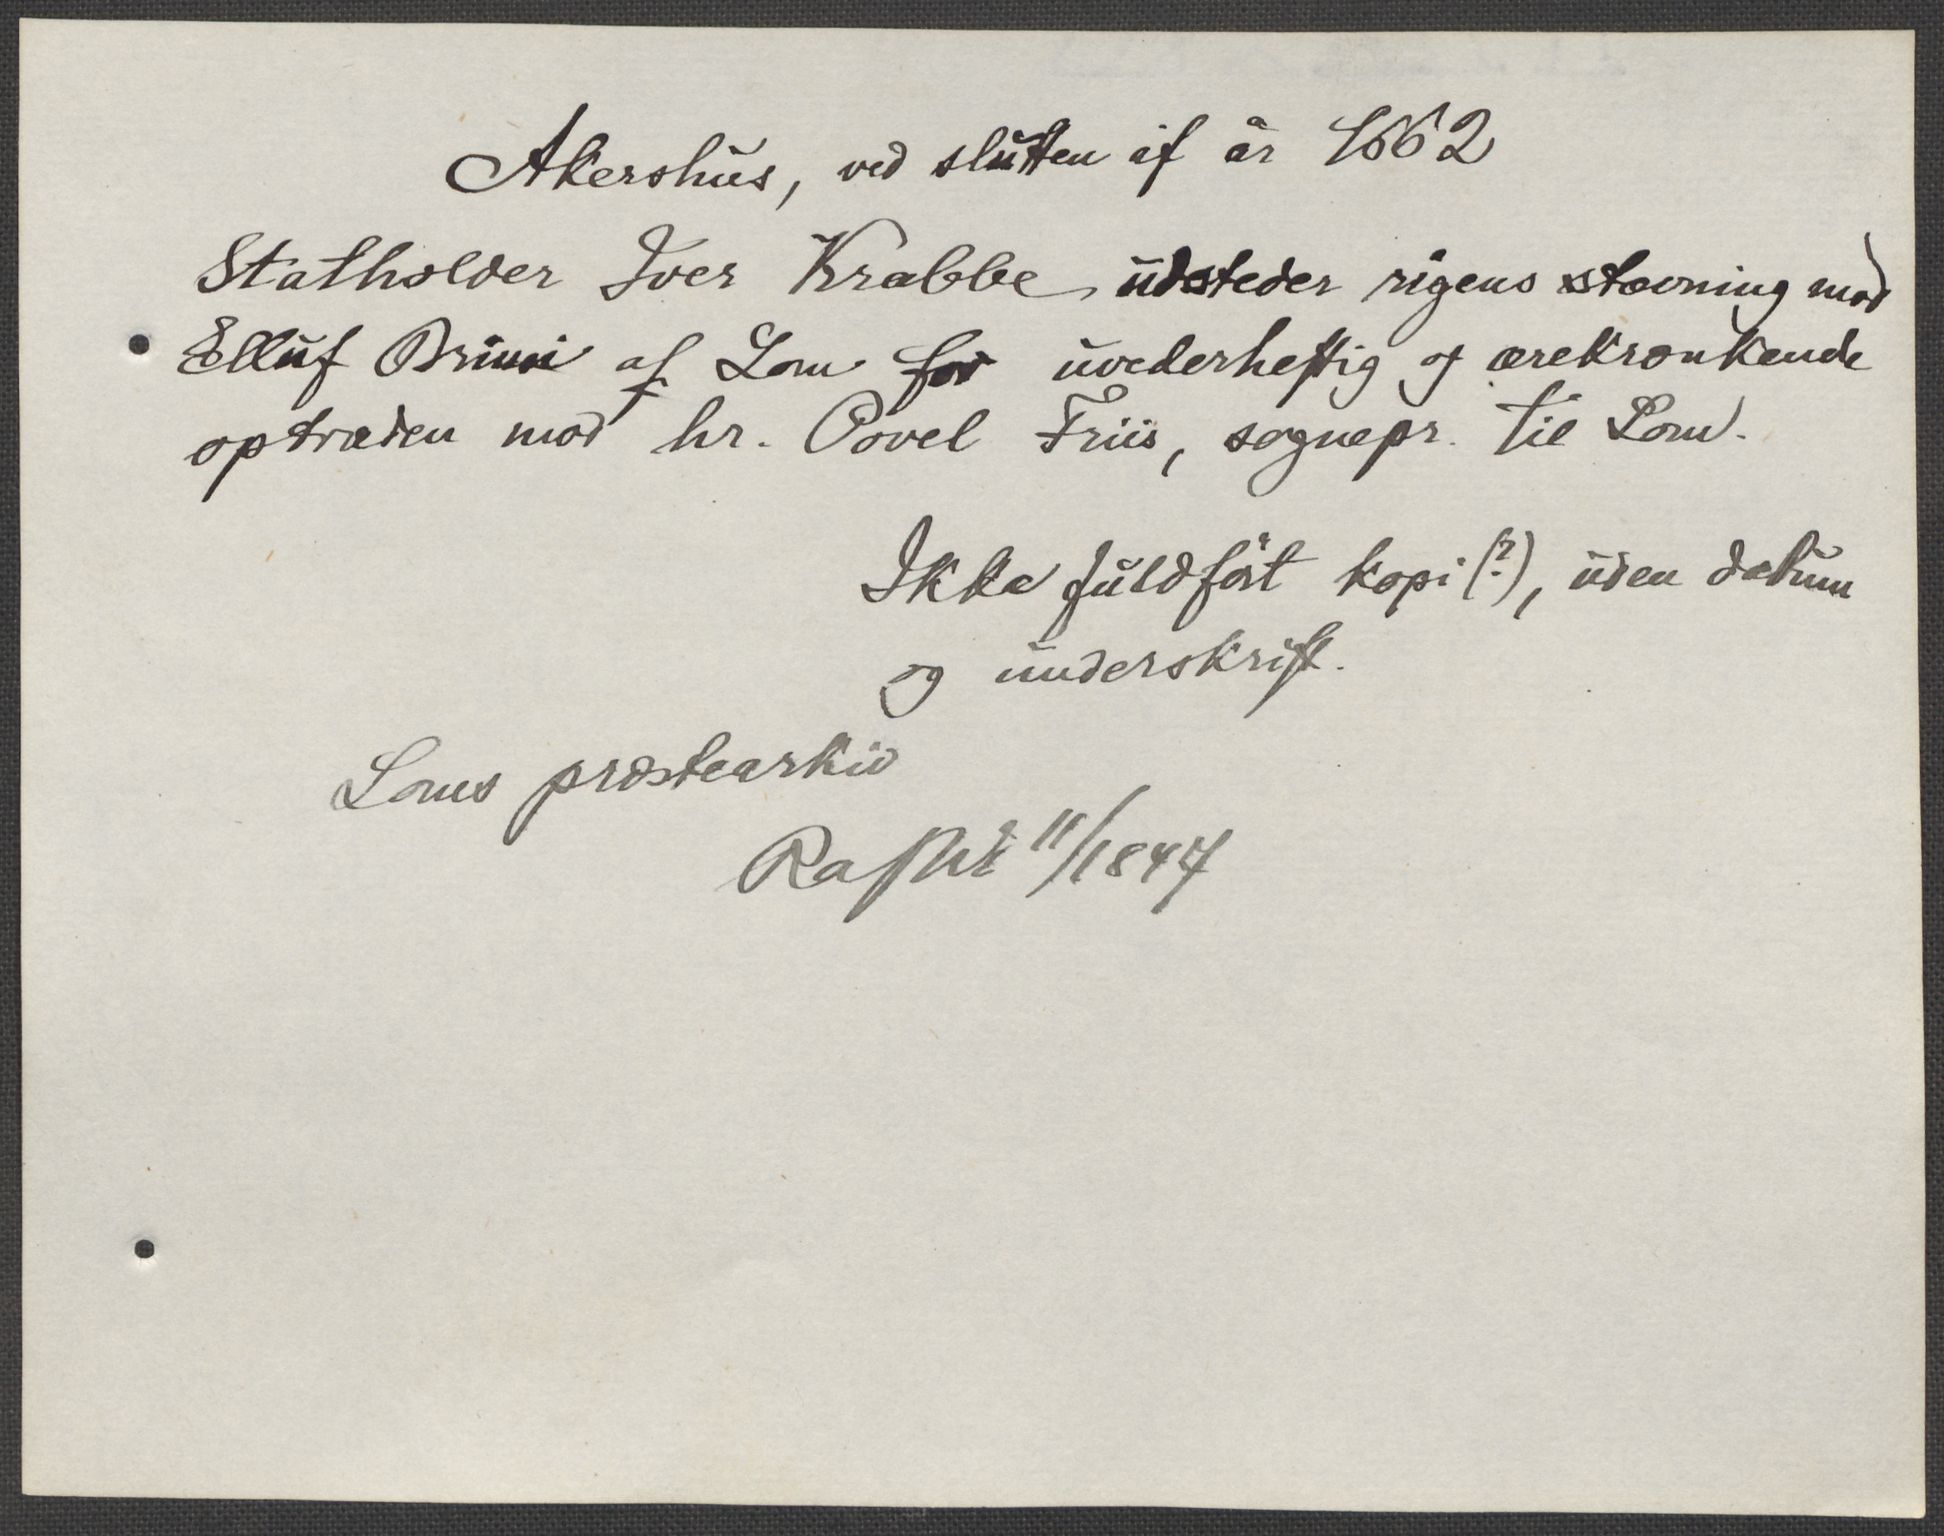 Akershus, ved slutten af år 1662
Statholder Iver Krabbe udsteder rigens stævning mod
Elluf Brimi af Lom for uvederheftig og ærekrænkende
optræden mod hr. Povel Friis, sognepr. til Lom.
Ikke fuldført kopi (?), uden datum
og underskrift.
Loms præstearkiv
11/1847